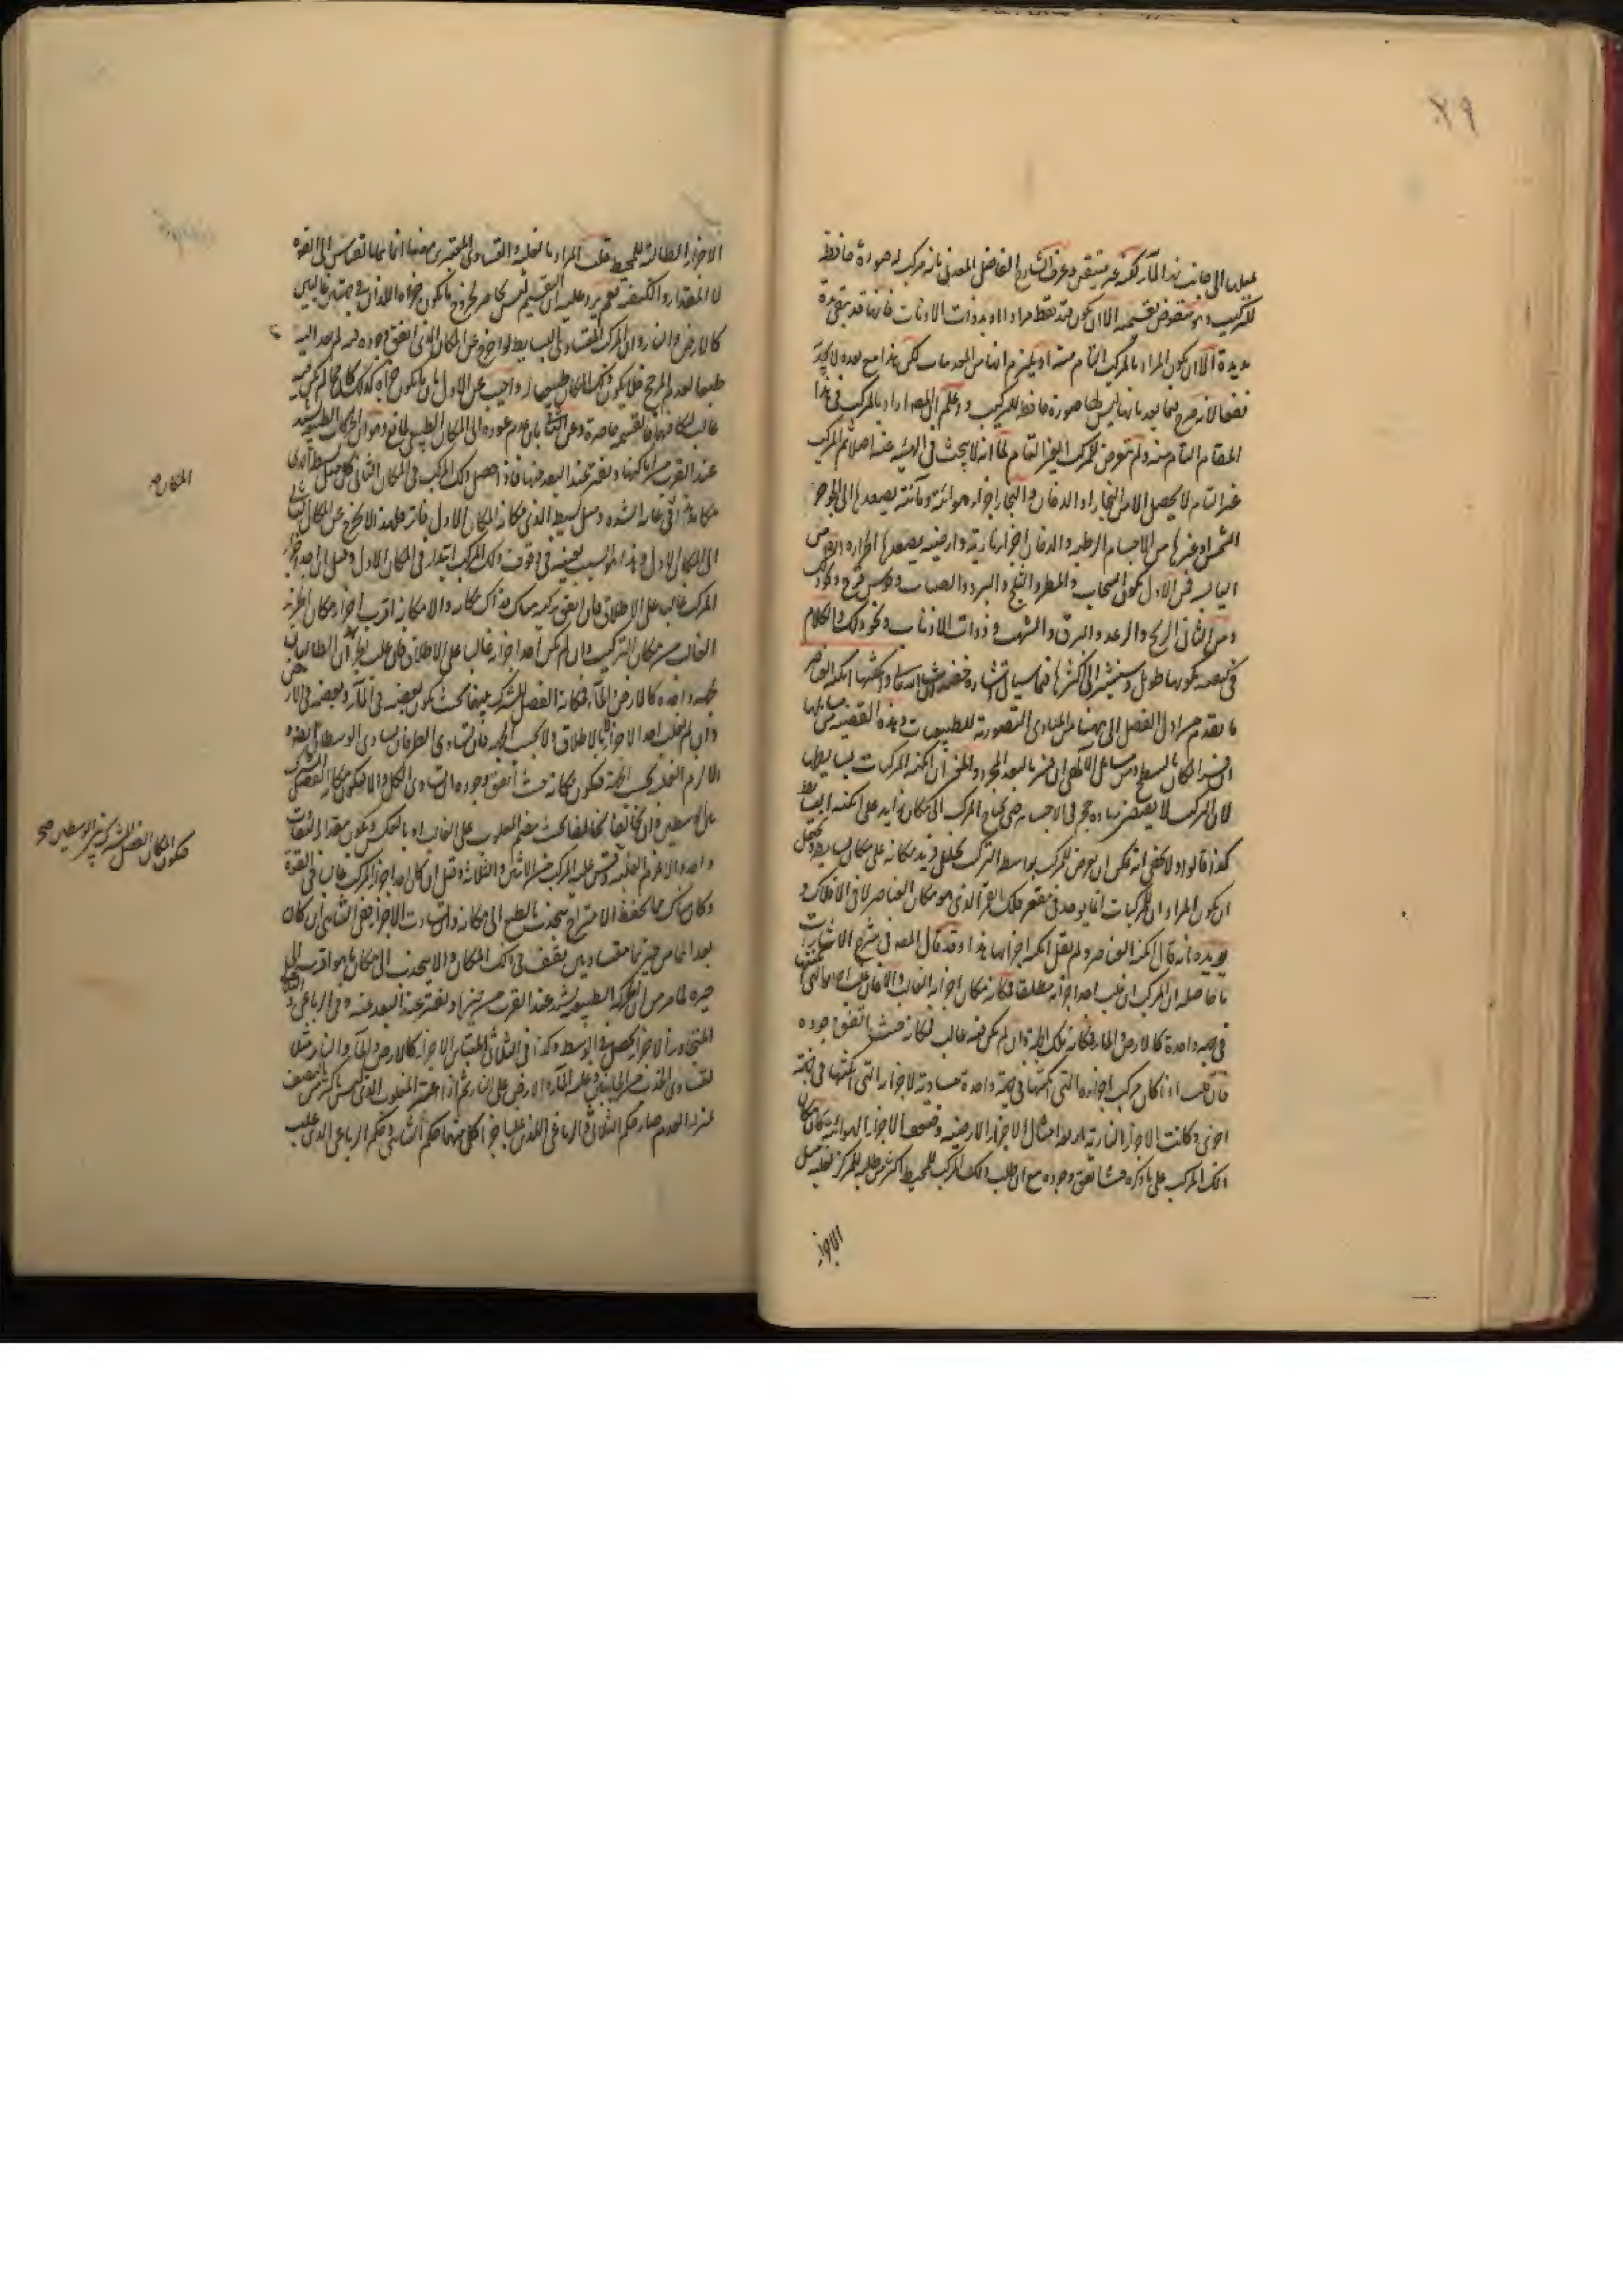 ٧٩
يميلان الى جانب هذا الماء لكنه غير متيقن وعرف الشارح الفاضل المعدني بانه مركب له صورة حافظة
للتركيب وهو منقوض بقسيميه الا ان يكون قيد فقط مرادا او بذوات الاذناب فانها قد تبقى مدة
مديدة الا ان يكون المراد بالمركب التام منه او يلتزم انها من المعدنيات لكن هذا مع بعده لا يجديه
نفعا لانه صرح فيما بعد بانها ليس لها صورة حافظة للتركيب واعلم ان المص اراد بالمركب في هذا
المقام التام منه ولم يتعرض للمركب الغير التام لما انه لا يبحث في الهيئة عنه اصلا ثم المركب
غير التام لا يحصل الا من البخار او الدخان والبخار اجزاء هوائية ومائية يصعدها الى الجو حر
الشمس او غيرها من الاجسام الرطبة والدخان اجزاء نارية وارضية يصعدها الحرارة من
اليابسة فمن الاول يكون السحاب والمطر والثلج والبرد والضباب وقوس قزح وغير ذلك
ومن الثاني الريح والرعد والبرق والشهب وذوات الاذناب ونحو ذلك والكلام
في كيفية تكونها طويل وسنشير الى اكثرها فيما سيأتي اشارة خفيفة ان شاء الله تعالى وامكنتها امكنة العناصر
ما تقدم من اول الفصل الى ههنا من المبادي التصورية للطبيعيات وهذه القضية من مسائلها
ان فسر المكان بالسطح ومن مسائل الالهي ان فسر بالبعد المجرد والمعنى ان امكنة المركبات بسايطها
لان المركب لا يقتضي زيادة حجم في الاجسام حتى يحتاج المركب الى مكان زايد على امكنة البسايط
كذا قالوا ولا يخفى انه يمكن ان يعرض للمركب بواسطة التركيب تخلخل فيزيد مكانه على مكان بسايطه ويحتمل
ان يكون المراد ان المركبات انما يوجد في مقعر فلك القمر الذي هو مكان العناصر لا في الافلاك و
يؤيده انه قال امكنة العناصر ولم يقل امكنة اجزائها هذا وقد قال المص في شرح الاشارات
ما حاصله ان المركب ان غلب احد اجزائه مطلقا فمكانه مكان اجزائه الغالب والا فان غلب اجزاؤه التي امكنتها
في جهة واحدة كالارض والماء فمكانه تلك الجهة وان لم يكن فيه غالب فمكانه حيث اتفق وجوده
فان قلت اذا كان مركب اجزاؤه التي امكنتها في جهة واحدة مساوية لاجزائه التي امكنتها في جهة
اخرى وكانت الاجزاء النارية اربعة امثال الاجزاء الارضية وضعف الاجزاء الهوائية كان مكان
ذلك المركب على ما ذكره حيث اتفق وجوده مع ان طلب ذلك المركب للمحيط اكثر من طلبه للمركز لغلبة ميل
الاجزاء
الاجزاء الطالبة للمحيط قلت المراد بالغلبة والتساوي المعتبرين ههنا انما هما بالقياس الى القوة
لا المقدار والكيفية نعم يرد عليه ان التقسيم ليس بحاصر لخروج ما يكون جزءاه اللذان في جهتين غالبين
كالارض والنار وان المركب المتساوي البسايط لو اخرج عن المكان الذي اتفق وجوده فيه لم يعد اليه
طبعا لعدم المرجح فلا يكون ذلك المكان طبيعيا له واجيب عن الاول بان ما يكون جزءاه كذلك كان مما لم يكن فيه
غالب فالقسمة حاصرة وعن الثاني بان عدم عوده الى المكان الطبيعي لمانع وهو ان الحركة الطبيعية تشتد
عند القرب من امكنتها وتفتر عند البعد منها فاذا حصل ذلك المركب في المكان الثاني كان ميل بسيط الذي
مكانه في غاية الشدة وميل بسيطه الذي مكانه المكان الاول فاترا فلهذا لا يخرج عن المكان الثاني
الى المكان الاول وهذا هو السبب بعينه في وقوف ذلك المركب ابتداء في المكان الاول وقيل ان احد اجزاء
المركب غالب على الاطلاق فان اتفق تركيبه هناك فذاك مكانه والا مكانه اقرب اجزاء مكان الجزء
الغالب من مكان التركيب وان لم يكن احد اجزائه غالبا على الاطلاق فان غلب الجزءان الطالبان
لجهة واحدة كالارض والماء فمكانه الفصل المشترك بينهما بحيث يكون بعضه في الماء وبعضه في الارض
وان لم يغلب احد الاجزاء لا بالاطلاق ولا بحسب الجهة فان تساوى الطرفان تساوى الوسطان ايضا و
الا لزم الغلبة بحسب الجهة فيكون مكانه حيث اتفق وجوده ان تساوى الكل والا فيكون مكانه الفصل المشترك
بين الوسطين وان تخالفا
واحد والا لزم الغلبة وقس عليه المركب من الاثنين والثلاثة وقيل ان كان احد اجزاء المركب غالبا في القوة
وكان هناك ما يحفظ الامتزاج ينجذب بالطبع الى مكانه وان تساوت الاجزاء ففي الثنائي ان كان
بعداهما من حيزيهما متساويين يقف في ذلك المكان والا ينجذب الى مكان ما هو اقرب الى
حيزه لما مر من ان الحركة الطبيعية تشتد عند القرب من الحيز وتفتر عند البعد عنه وفي الرباعي
المتجاور الاجزاء يحصل في الوسط وكذا في الثلاثي المتباين الاجزاء كالارض والماء والنار مثلا
لتساوي الجذب من الجانبين وغلبة الماء والارض على النار ثم اذا اعتبر المغلوب الذي ليس باكثر من النصف
بمنزلة المعدوم صار حكم الثلاثي والرباعي اللذين غلب اجزاء كل منهما حكم الثنائي وحكم الرباعي الذي غلب
المكان صح
فيكون المكان الفصل المشترك بين الوسطين صح